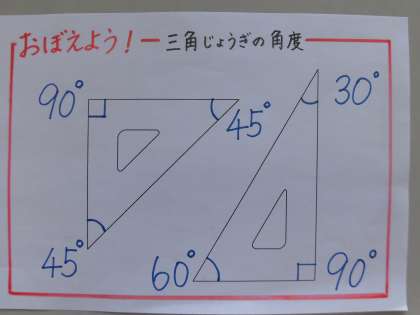 おぼえよう!ー三角じょうぎの角度
90°
45°
30°
45°
60°
90°